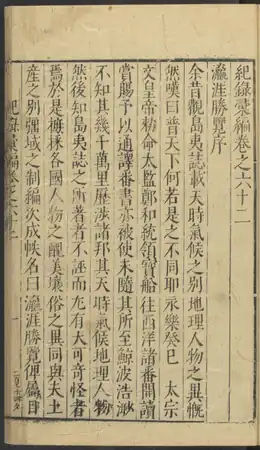 紀錄彙編卷之六十二
瀛涯勝覽序
余昔觀島夷誌載天時氣候之別地理人物之異慨
然嘆曰普天下何若是之不同耶永樂癸巳　太宗
文皇帝勑命太監鄭和統領寳船往西洋諸番開讀
賞賜予以通譯番書亦被使末隨其所至鯨波浩渺
不知其幾千萬里歷涉諸邦其天時氣候地理人物
然後知島夷誌之所著者不誣而尤有大可奇怪者
焉於是採摭各國人物之醜美壤俗之異同與夫土
産之別疆域之制編次成帙名曰瀛涯勝覽俾屬目
紀錄彙編卷之六十二　一